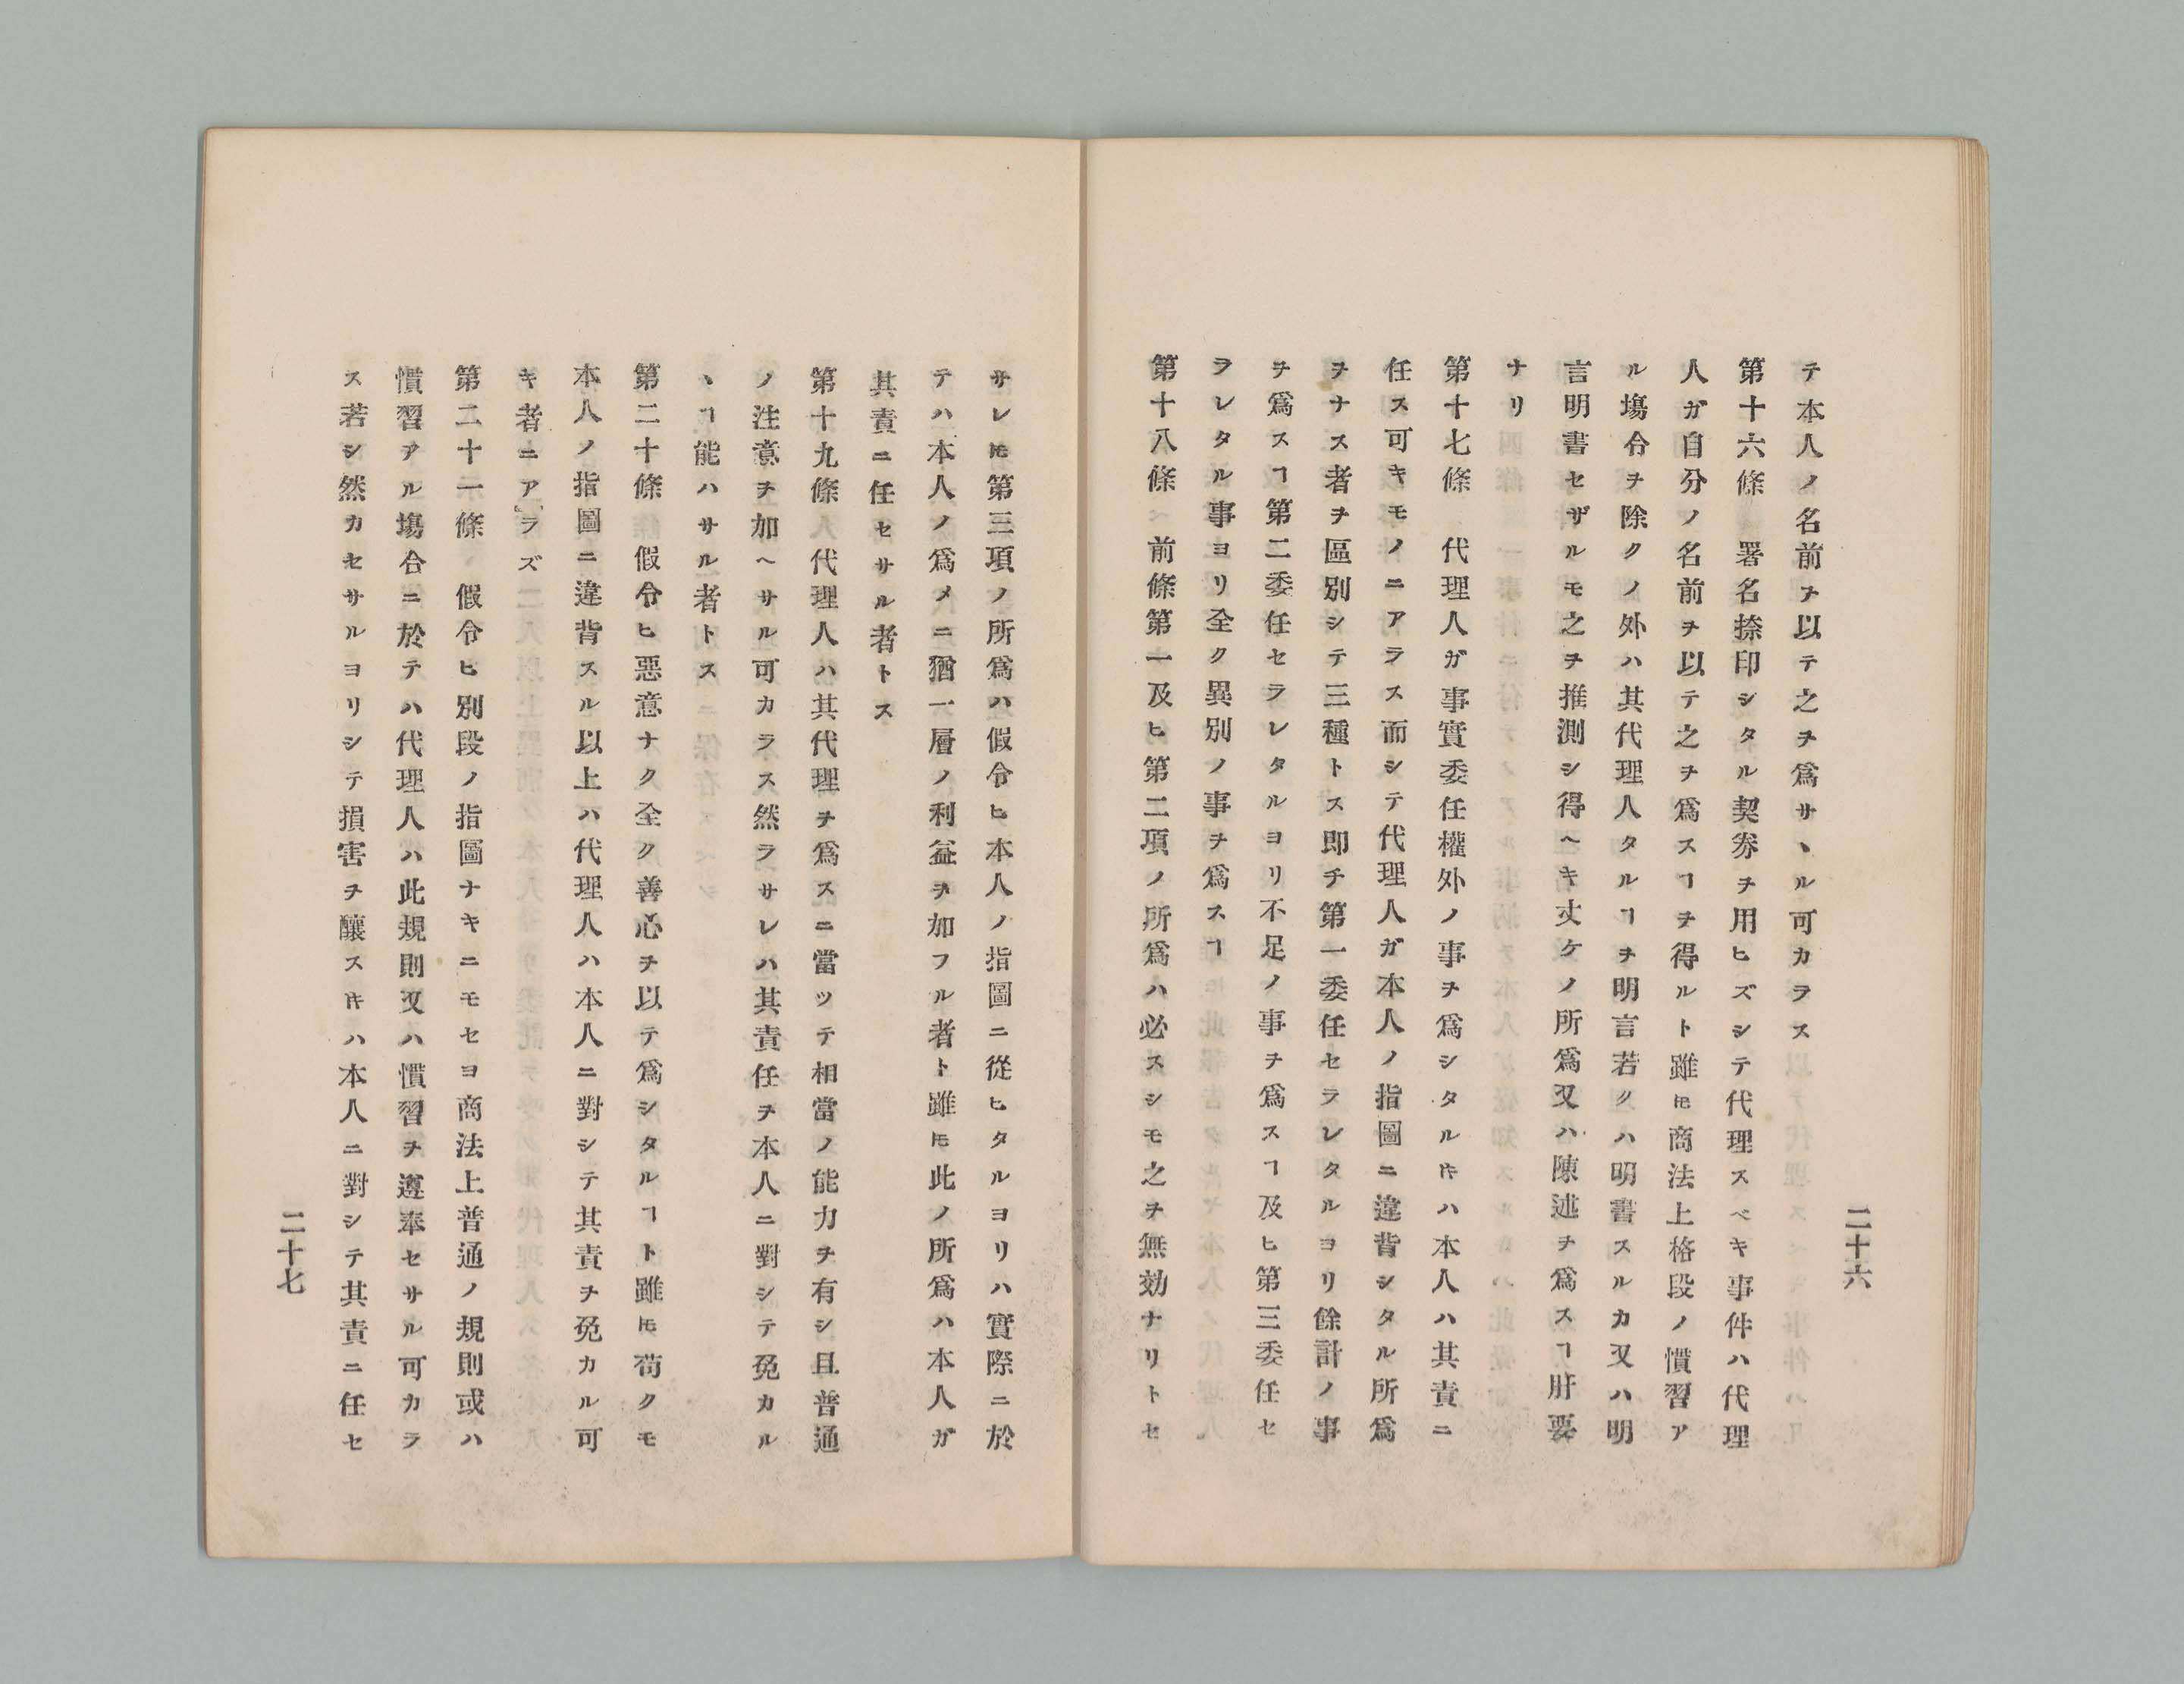 二十六
テ本人ノ名前ヲ以テ之ヲ爲サヽル可カラス
第十六條　署名捺印シタル契劵ヲ用ヒズシテ代理スベキ事件ハ代理
人ガ自分ノ名前ヲ以テ之ヲ爲スヿヲ得ルト雖𪜈商法上格段ノ慣習ア
ル塲合ヲ除クノ外ハ其代理人タルヿヲ明言若クハ明書スルカ又ハ明
言明書セザルモ之ヲ推測シ得ヘキ丈ケノ所爲又ハ陳述ヲ爲スヿ肝要
ナリ
第十七條　代理人ガ事實委任權外ノ事ヲ爲シタルキハ本人ハ其責ニ
任ス可キモノニアラス而シテ代理人ガ本人ノ指圖ニ違背シタル所爲
ヲナス者ヲ區別シテ三種トス即チ第一委任セラレタルヨリ餘計ノ事
ヲ爲スヿ第二委任セラレタルヨリ不足ノ事ヲ爲スヿ及ヒ第三委任セ
ラレタル事ヨリ全ク異別ノ事ヲ爲スヿ
第十八條　前條第一及ヒ第二項ノ所爲ハ必スシモ之ヲ無効ナリトセ
サレ𪜈第三項ノ所爲ハ假令ヒ本人ノ指圖ニ從ヒタルヨリハ實際ニ於
テハ本人ノ爲メニ猶一層ノ利益ヲ加フル者ト雖𪜈此ノ所爲ハ本人ガ
其責ニ任セサル者トス
第十九條　代理人ハ其代理ヲ爲スニ當ツテ相當ノ能力ヲ有シ且普通
ノ注意ヲ加ヘサル可カラス然ラサレハ其責任ヲ本人ニ對シテ免カル
ヽヿ能ハサル者トス
第二十條　假令ヒ惡意ナク全ク善心ヲ以テ爲シタルヿト雖𪜈苟クモ
本人ノ指圖ニ違背スル以上ハ代理人ハ本人ニ對シテ其責ヲ免カル可
キ者ニアラズ
第二十一條　假令ヒ別段ノ指圖ナキニモセヨ商法上普通ノ規則或ハ
慣習アル塲合ニ於テハ代理人ハ此規則又ハ慣習ヲ遵奉セサル可カラ
ス若シ然カセサルヨリシテ損害ヲ釀スキハ本人ニ對シテ其責ニ任セ
二十七